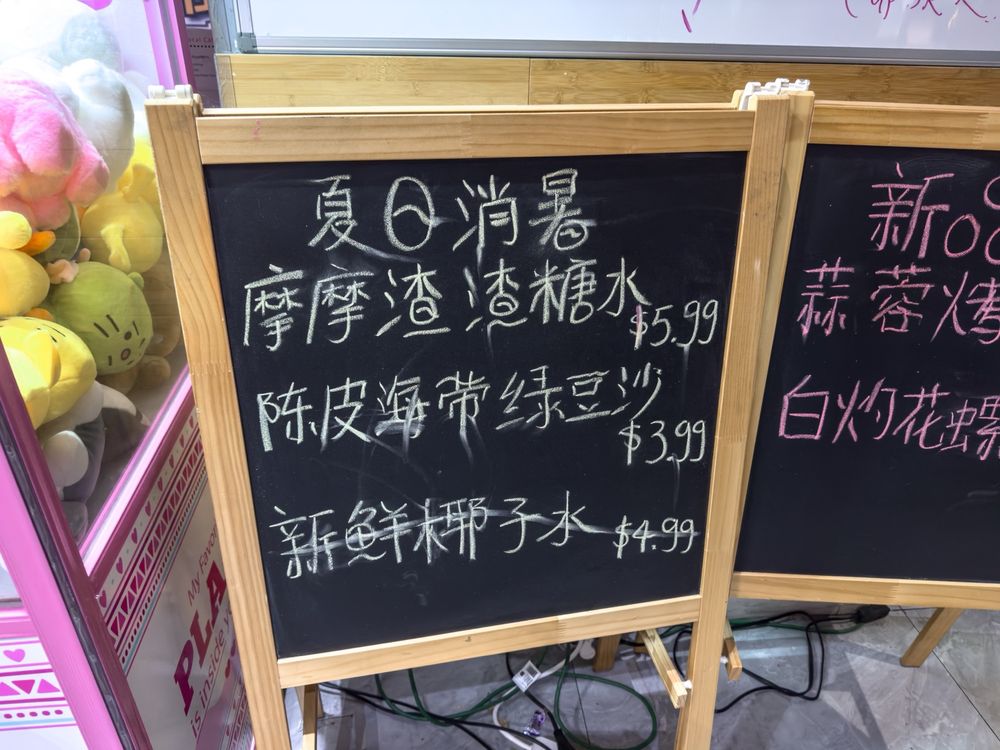 夏日消暑
摩摩渣渣糖水 $5.99
陈皮海带绿豆沙 $3.99
新鲜椰子水 $4.99
新
蒜蓉烤
白灼花螺
My Favor
PLA
is inside